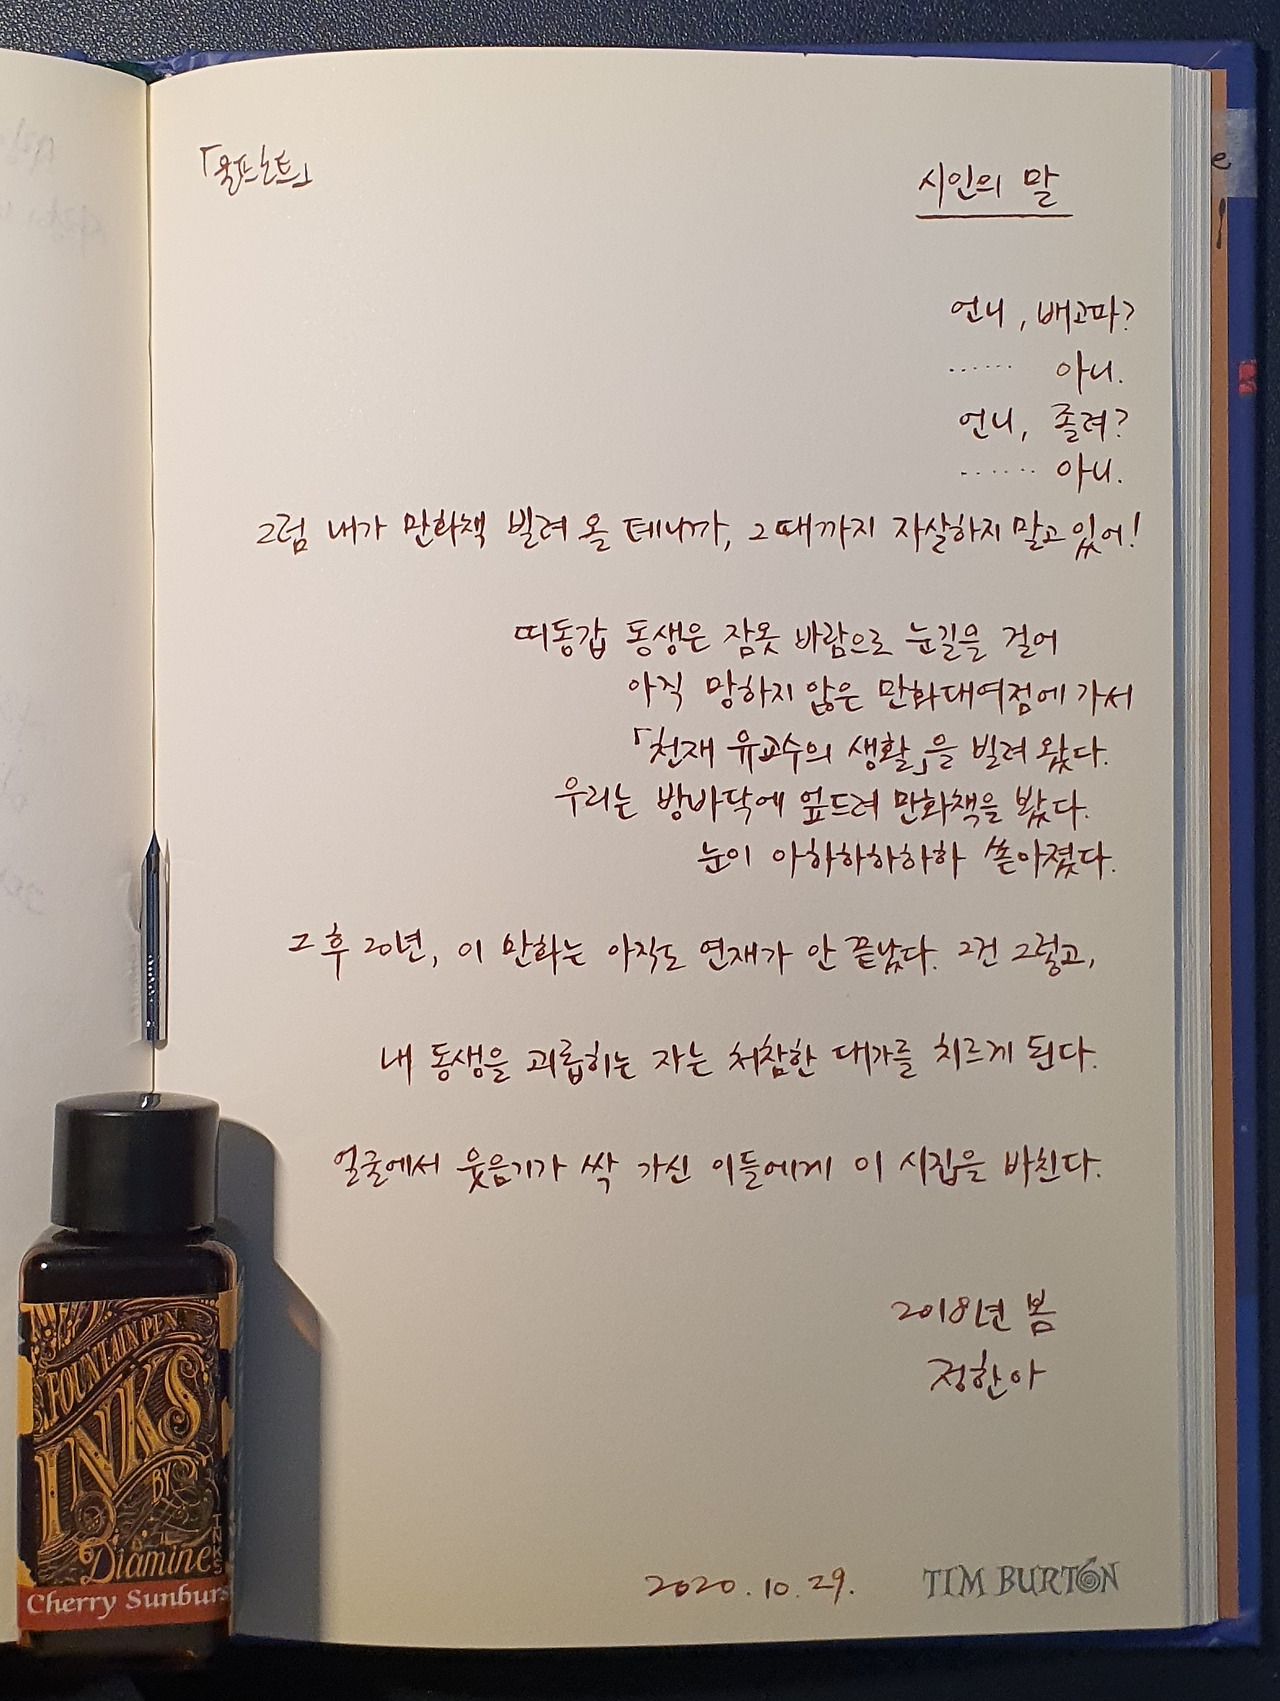 「울프노트」
시인의 말
언니, 배고파?
…… 아니.
언니, 졸려?
…… 아니.
그럼 내가 만화책 빌려 올 테니까, 그때까지 자살하지 말고 있어!
띠동갑 동생은 잠옷 바람으로 눈길을 걸어
아직 망하지 않은 만화대여점에 가서
「천재 유교수의 생활」을 빌려 왔다.
우리는 방바닥에 엎드려 만화책을 봤다.
눈이 아하하하하하 쏟아졌다.
그 후 20년, 이 만화는 아직도 연재가 안 끝났다. 그건 그렇고,
내 동생을 괴롭히는 자는 처참한 대가를 치르게 된다.
얼굴에서 웃음기가 싹 가신 이들에게 이 시집을 바친다.
2018년 봄
정한아
2020.10.29.
TIM BURTON
FOUNTAIN PEN
INKS
BY
Diamine
INKS
Cherry Sunburs
e